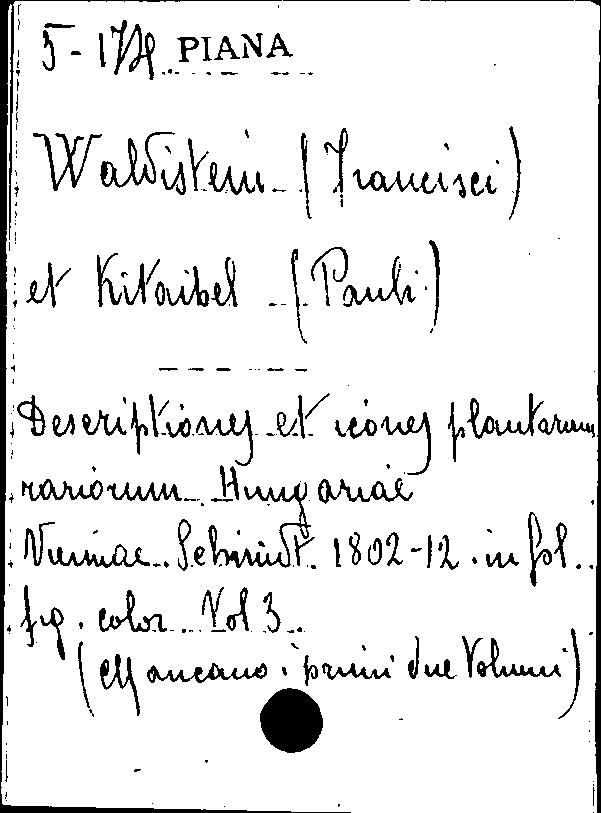 PIANA
Waldistein (Francisci)
et Kitaibel (Pauli)
Descriptiones et icones plantarum
rariorum Hungariae
Viennae. Schmidt. 1802-12. in fol.
fig. color. Vol 3.
(Mancano i primi due Volumi)